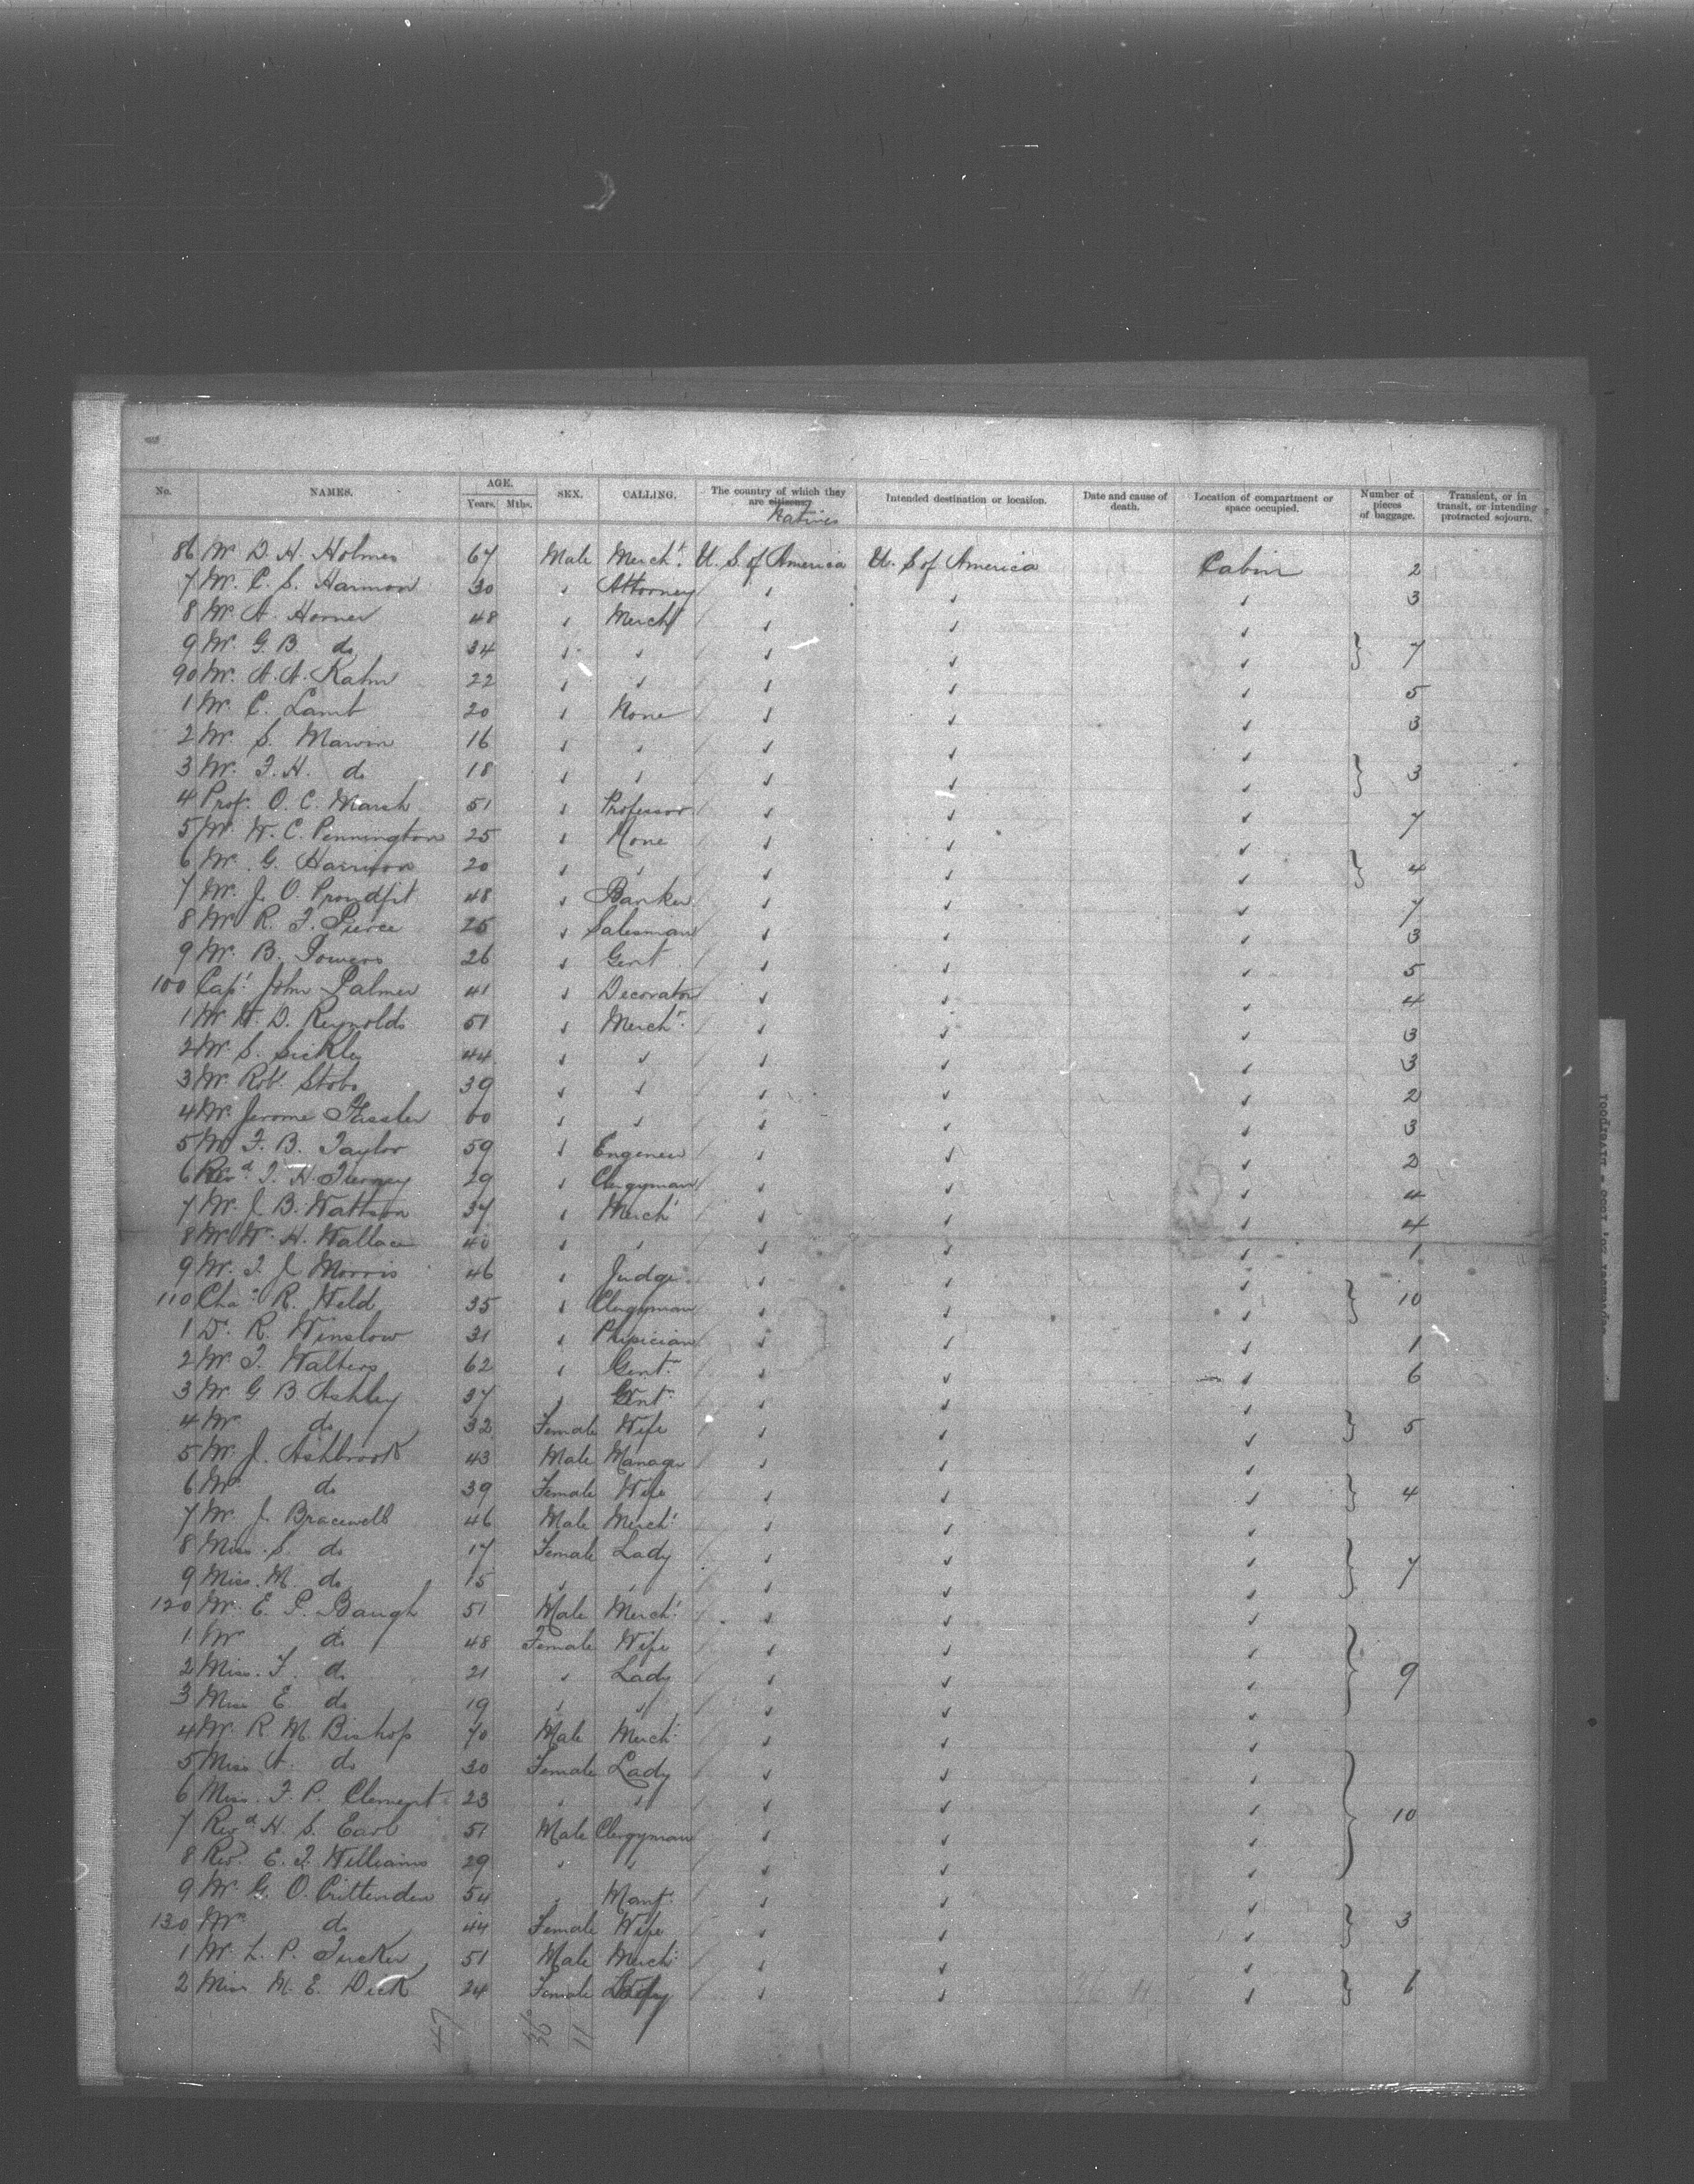 No. NAMES. AGE. Years. Mths. SEX. CALLING. The country of which they are citizens. Natives Intended destination or location. Date and cause of death. Location of compartment or space occupied. Number of pieces of baggage. Transient, or in transit, or intending protracted sojourn.
86 Mr. D. H. Holmes 67 Male Mercht. U. S. of America U. S. of America Cabin 2
7 Mr. C. S. Harmon 30 " Attorney " " " 3
8 Mr. A. Horner 48 " Mercht " " "
9 Mr. G. B. do 34 " " " " " } 7
90 Mr. A. A. Kahn 22 " " " " " 5
1 Mr. C. Lamb 20 " None " " " 3
2 Mr. S. Marvin 16 " " " " "
3 Mr. F. H. do 18 " " " " " } 3
4 Prof. O. C. Marsh 51 " Professor " " " 7
5 Mr. W. C. Pennington 25 " None " " "
6 Mr. G. Harrison 20 " " " " " } 4
7 Mr. J. O. Proudfit 48 " Banker " " " 7
8 Mr. R. F. Pierce 25 " Salesman " " " 3
9 Mr. B. Powers 26 " Gent " " " 5
100 Capt. John Palmer 41 " Decorator " " " 4
1 Mr. H. D. Reynolds 51 " Mercht. " " " 3
2 Mr. S. Sickley 44 " " " " " 3
3 Mr. Robt. Stobo 39 " " " " " 2
4 Mr. Jerome 60 " " " " " 3
5 Mr. F. B. Taylor 59 " Engineer " " " 2
6 Revd. T. H. Tierney 29 " Clergyman " " " 4
7 Mr. J. B. Wattson 37 " Mercht " " " 4
8 Mr. Wm. H. Wallace 40 " " " " " 1
9 Mr. T. J. Morris 46 " Judge " " "
110 Chas. R. Weld 35 " Clergyman " " " } 10
1 Dr. R. Winslow 31 " Physician " " " 1
2 Mr. T. Walters 62 " Gentn. " " " 6
3 Mr. G. B. Ashley 37 " Gentn. " " "
4 Mrs. do 32 Female Wife " " " } 5
5 Mr. J. Ashbrook 43 Male Manager " " "
6 Mrs. do 39 Female Wife " " " } 4
7 Mr. J. Bracewell 46 Male Mercht. " " "
8 Miss. S. do 17 Female Lady " " " } 7
9 Miss. M. do 15 " " " " "
120 Mr. E. P. Baugh 51 Male Mercht. " " "
1 Mrs. do 48 Female Wife " " "
2 Miss. F. do 21 " Lady " " " } 9
3 Miss E do 19 " " " " "
4 Mr. R. M. Bishop 70 Male Mercht. " " "
5 Miss A. do 30 Female Lady " " "
6 Miss. F. P. Clement 23 " " " " " } 10
7 Revd. H. S. Earl 51 Male Clergyman " " "
8 Rev. E. T. Williams 29 " " " " "
9 Mr. G. O. Crittenden 54 " Manf. " " "
130 Mrs. do 44 Female Wife " " " } 3
1 Mr. L. P. Tucker 51 Male Mercht. " " "
2 Miss M. E. Dick 24 Female Lady " " " } 6
47 36 11